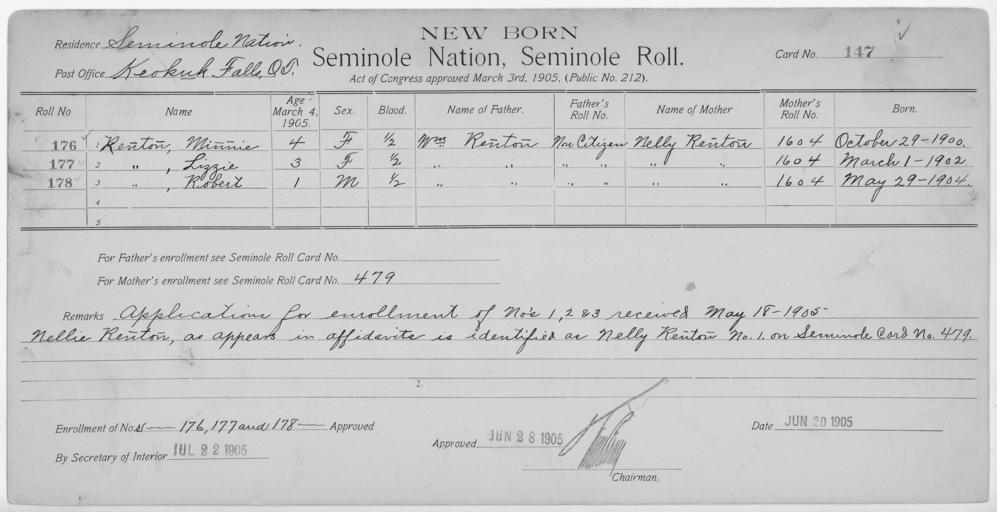 NEW BORN
Residence Seminole Nation.
Seminole Nation, Seminole Roll.
Card No. 147
Post Office Keokuk Falls, O.T.
Act of Congress approved March 3rd, 1905. (Public No. 212).
Roll No Name Age March 4, 1905. Sex. Blood. Name of Father. Father's Roll No. Name of Mother Mother's Roll No. Born.
176 1 Renton, Minnie 4 F ½ Wm Renton Non Citizen Nelly Renton 1604 October 29-1900.
177 2 " , Lizzie 3 F ½ " " " " " " 1604 March 1-1902.
178 3 " , Robert 1 M ½ " " " " " " 1604 May 29-1904.
4
5
For Father's enrollment see Seminole Roll Card No.
For Mother's enrollment see Seminole Roll Card No. 479
Remarks Applications for enrollment of No's 1, 2 & 3 received May 18-1905-
Nellie Renton, as appears in affidavits is identified as Nelly Renton No. 1. on Seminole Card No. 479.
2.
Enrollment of Nos 176, 177 and 178 Approved
By Secretary of Interior JUL 22 1905
Approved JUN 28 1905
Chairman.
Date JUN 20 1905